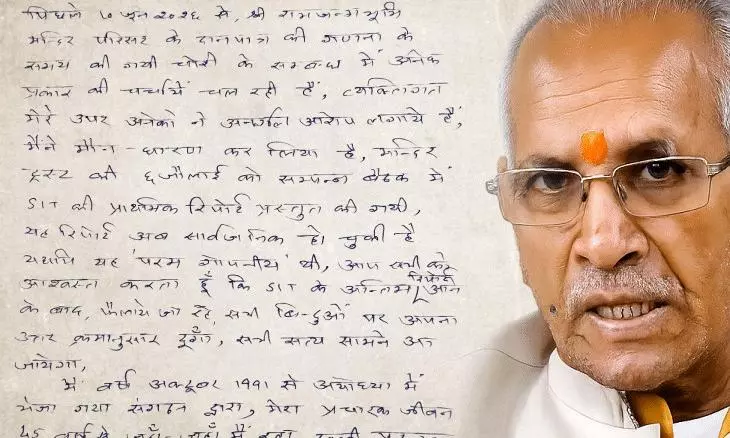 पिछले ७ जून २०२६ से, श्री रामजन्मभूमि
मन्दिर परिसर के दानपात्र की गणना के
समय की गयी चोरी के सम्बन्ध में अनेक
प्रकार की चर्चायें चल रही हैं, व्यक्तिगत
मेरे उपर अनेकों ने अनर्गल आरोप लगाये हैं,
मैंने मौन-धारण कर लिया है, मन्दिर
ट्रस्ट की ६ जौलाई को सम्पन्न बैठक में
SIT की प्राथमिक रिपोर्ट प्रस्तुत की गयी,
यह रिपोर्ट अब सार्वजनिक हो चुकी है
यद्यपि यह 'परम गोपनीय' थी, आप सभी को
आश्वस्त करता हूँ कि SIT के अन्तिम रिपोर्ट आने
के बाद, फैलाये जा रहे सभी बिन्दुओं पर अपना
उत्तर क्रमानुसार दूँगा, सभी सत्य सामने आ
जायेगा,
मैं वर्ष अक्टूबर 1991 से अयोध्या में
भेजा गया संगठन द्वारा, मेरा प्रचारक जीवन
45 वर्ष से जहाँ-जहाँ मैं रहा